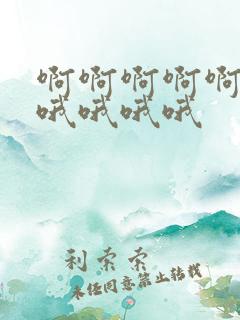 啊啊啊啊啊
哦哦哦哦
利索索
未经同意禁止转载